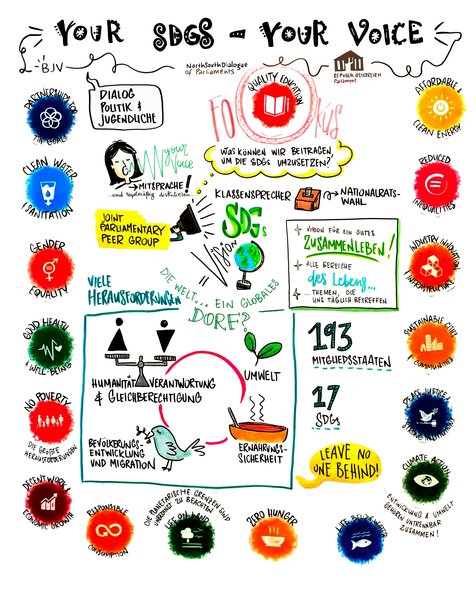 YOUR SDGS - YOUR VOICE
BJV
NorthSouthDialogue
of Parliaments
REPUBLIK ÖSTERREICH
Parlament
PARTNERSHIPS FOR
THE GOALS
DIALOG
POLITIK &
JUGENDLICHE
FOKUS
QUALITY EDUCATION
AFFORDABLE &
CLEAN ENERGY
WAS KÖNNEN WIR BEITRAGEN,
UM DIE SDGs UMZUSETZEN?
your
voice
CLEAN WATER
& SANITATION
→ MITSPRACHE!
KLASSENSPRECHER → NATIONALRATS-
WAHL
REDUCED
INEQUALITIES
JOINT
PARLIAMENTARY
PEER GROUP
SDGs
VISION
VISION FÜR EIN GUTES
ZUSAMMENLEBEN!
ALLE BEREICHE
des Lebens...
... THEMEN, DIE
UNS TÄGLICH BETREFFEN
GENDER
EQUALITY
INDUSTRY, INNOVATION
INFRASTRUCTURE
VIELE
HERAUSFORDERUNGEN
DIE WELT... EIN GLOBALES
DORF?
GOOD HEALTH
& WELL-BEING
193
MITGLIEDSSTAATEN
SUSTAINABLE CITIES
& COMMUNITIES
HUMANITÄT VERANTWORTUNG
& GLEICHBERECHTIGUNG
UMWELT
17
SDGs
NO POVERTY
DIE GRÖSSTE
HERAUSFORDERUNGEN
BEVÖLKERUNGS-
ENTWICKLUNG
UND MIGRATION
ERNÄHRUNGS-
SICHERHEIT
PEACE, JUSTICE
LEAVE NO
ONE BEHIND!
CLIMATE ACTION
ENTWICKLUNG & UMWELT
GEHÖREN UNTRENNBAR
ZUSAMMEN!
DECENT WORK
ECONOMIC GROWTH
RESPONSIBLE
CONSUMPTION
DIE PLANETARISCHE GRENZEN SIND
UNBEDINGT ZU BEACHTEN
LIFE ON LAND
ZERO HUNGER
LIFE BELOW WATER